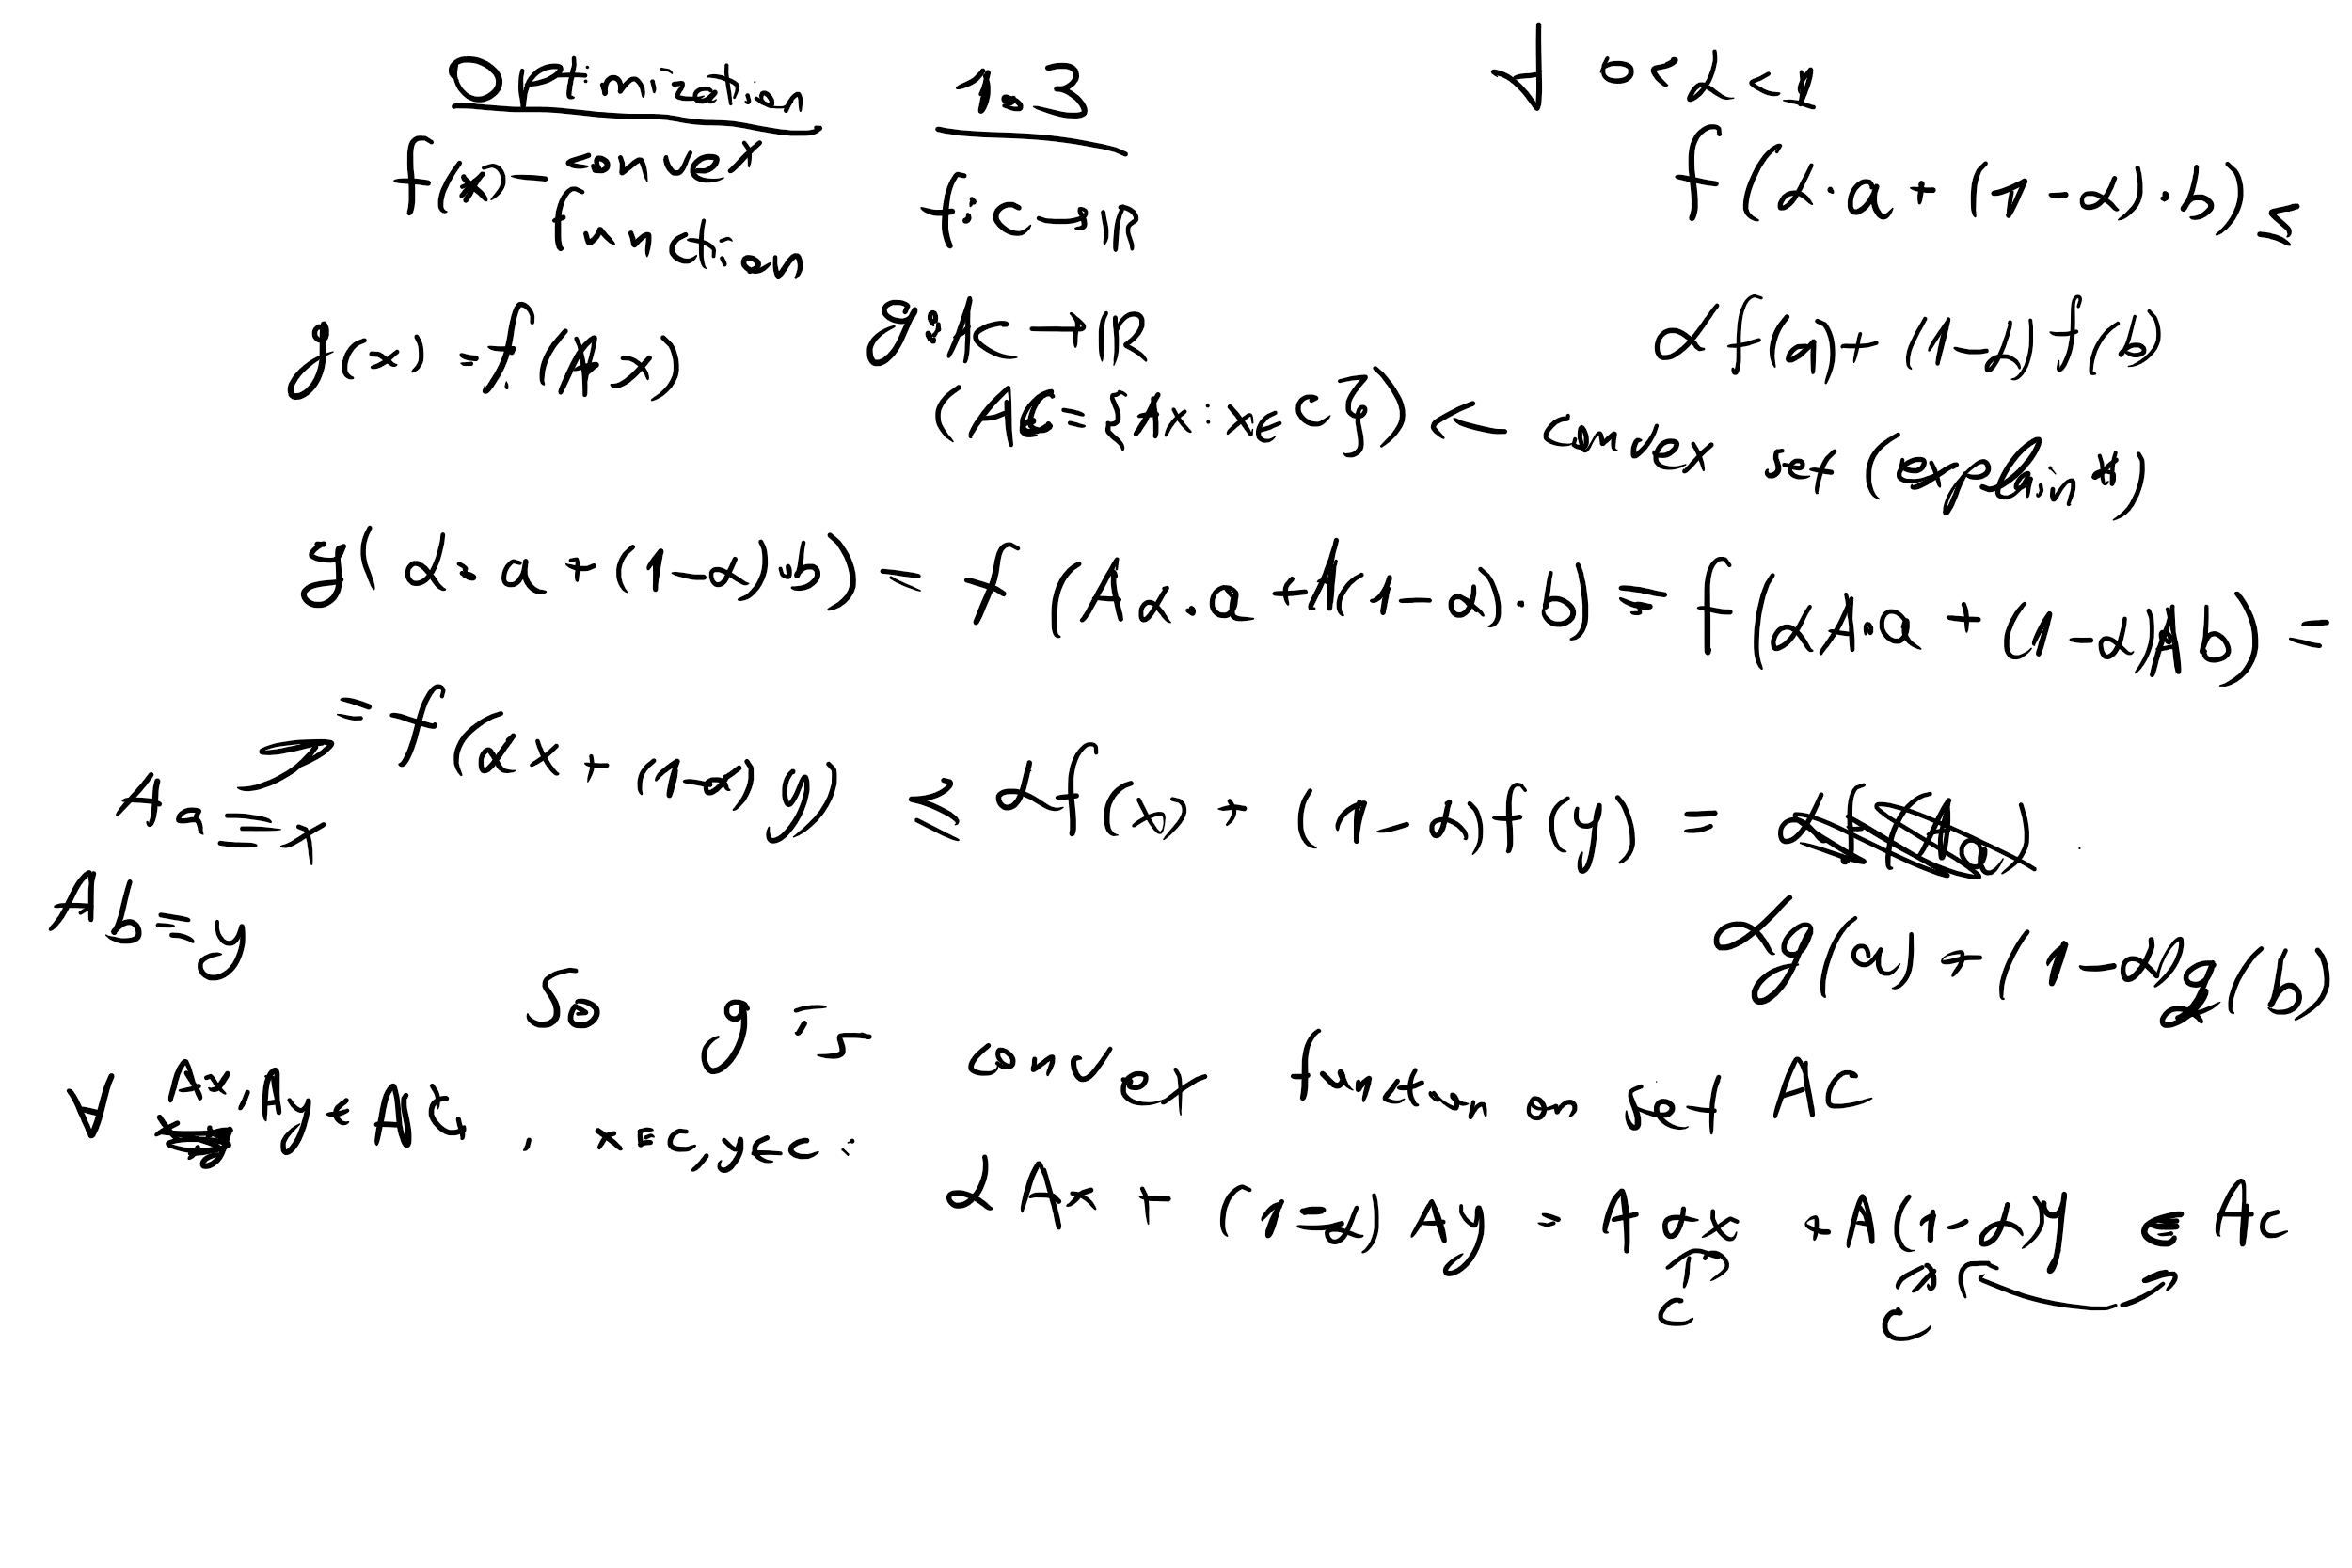 Optimization 1.3 ∀ 0<α<1
f(x) - convex function f: C→ℝ f(α·a+(1-α)·b) ≤
g(x) = f(Ax) g: AC→ℝ αf(a)+(1-α)f(b)
(AC={Ax: x∈C}) ← convex set (explain*)
g(α·a+(1-α)·b) = f(Aα·a+A(1-α)·b) = f(αA·a+(1-α)A·b) =
= f(αx+(1-α)y) ≤ αf(x)+(1-α)f(y) =
Aa=x
Ab=y αg(a)+(1-α)g(b)
So g is convex function on set AC
∀ Ax, Ay ∈ AC, x∈C, y∈C:
αAx + (1-α)Ay = Aαx + A(1-α)y ∈ AC
C C